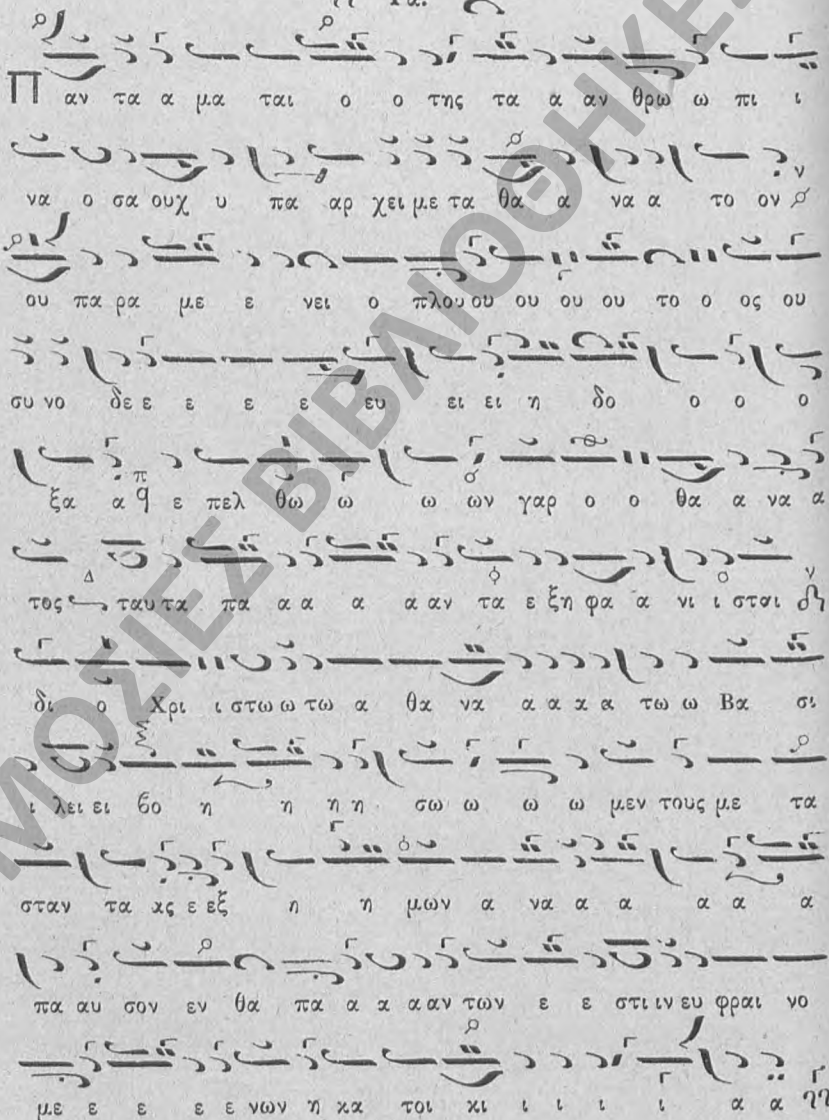 Π αν τα α μα ται ο ο της τα α αν θρω ω πι ι
να ο σα ουχ υ πα αρ χει με τα θα α να α το ον
ου πα ρα με ε νει ο πλου ου ου ου ου το ο ος ου
συ νο δε ε ε ε ε ευ ει ει η δο ο ο ο
ξα α π q ε πελ θω ω ω ων γαρ ο ο θα α να α
τος Δ ταυ τα πα α α α α αν τα ε ξη φα α νι ι σται ν
δι ο Χρι ι στω ω τω α θα να α α α α τω ω Βα σι
ι λει ει βο η η η η σω ω ω ω μεν τους με τα
σταν τα ας ε εξ η η μων α να α α α α α
πα αυ σον εν θα πα α α α αν των ε ε στι ιν ευ φραι νο
με ε ε ε ε νων η κα τοι κι ι ι ι ι α α Γ
ΜΟΣΙΕΣ ΒΙΒΛΙΟΘΗΚΕ